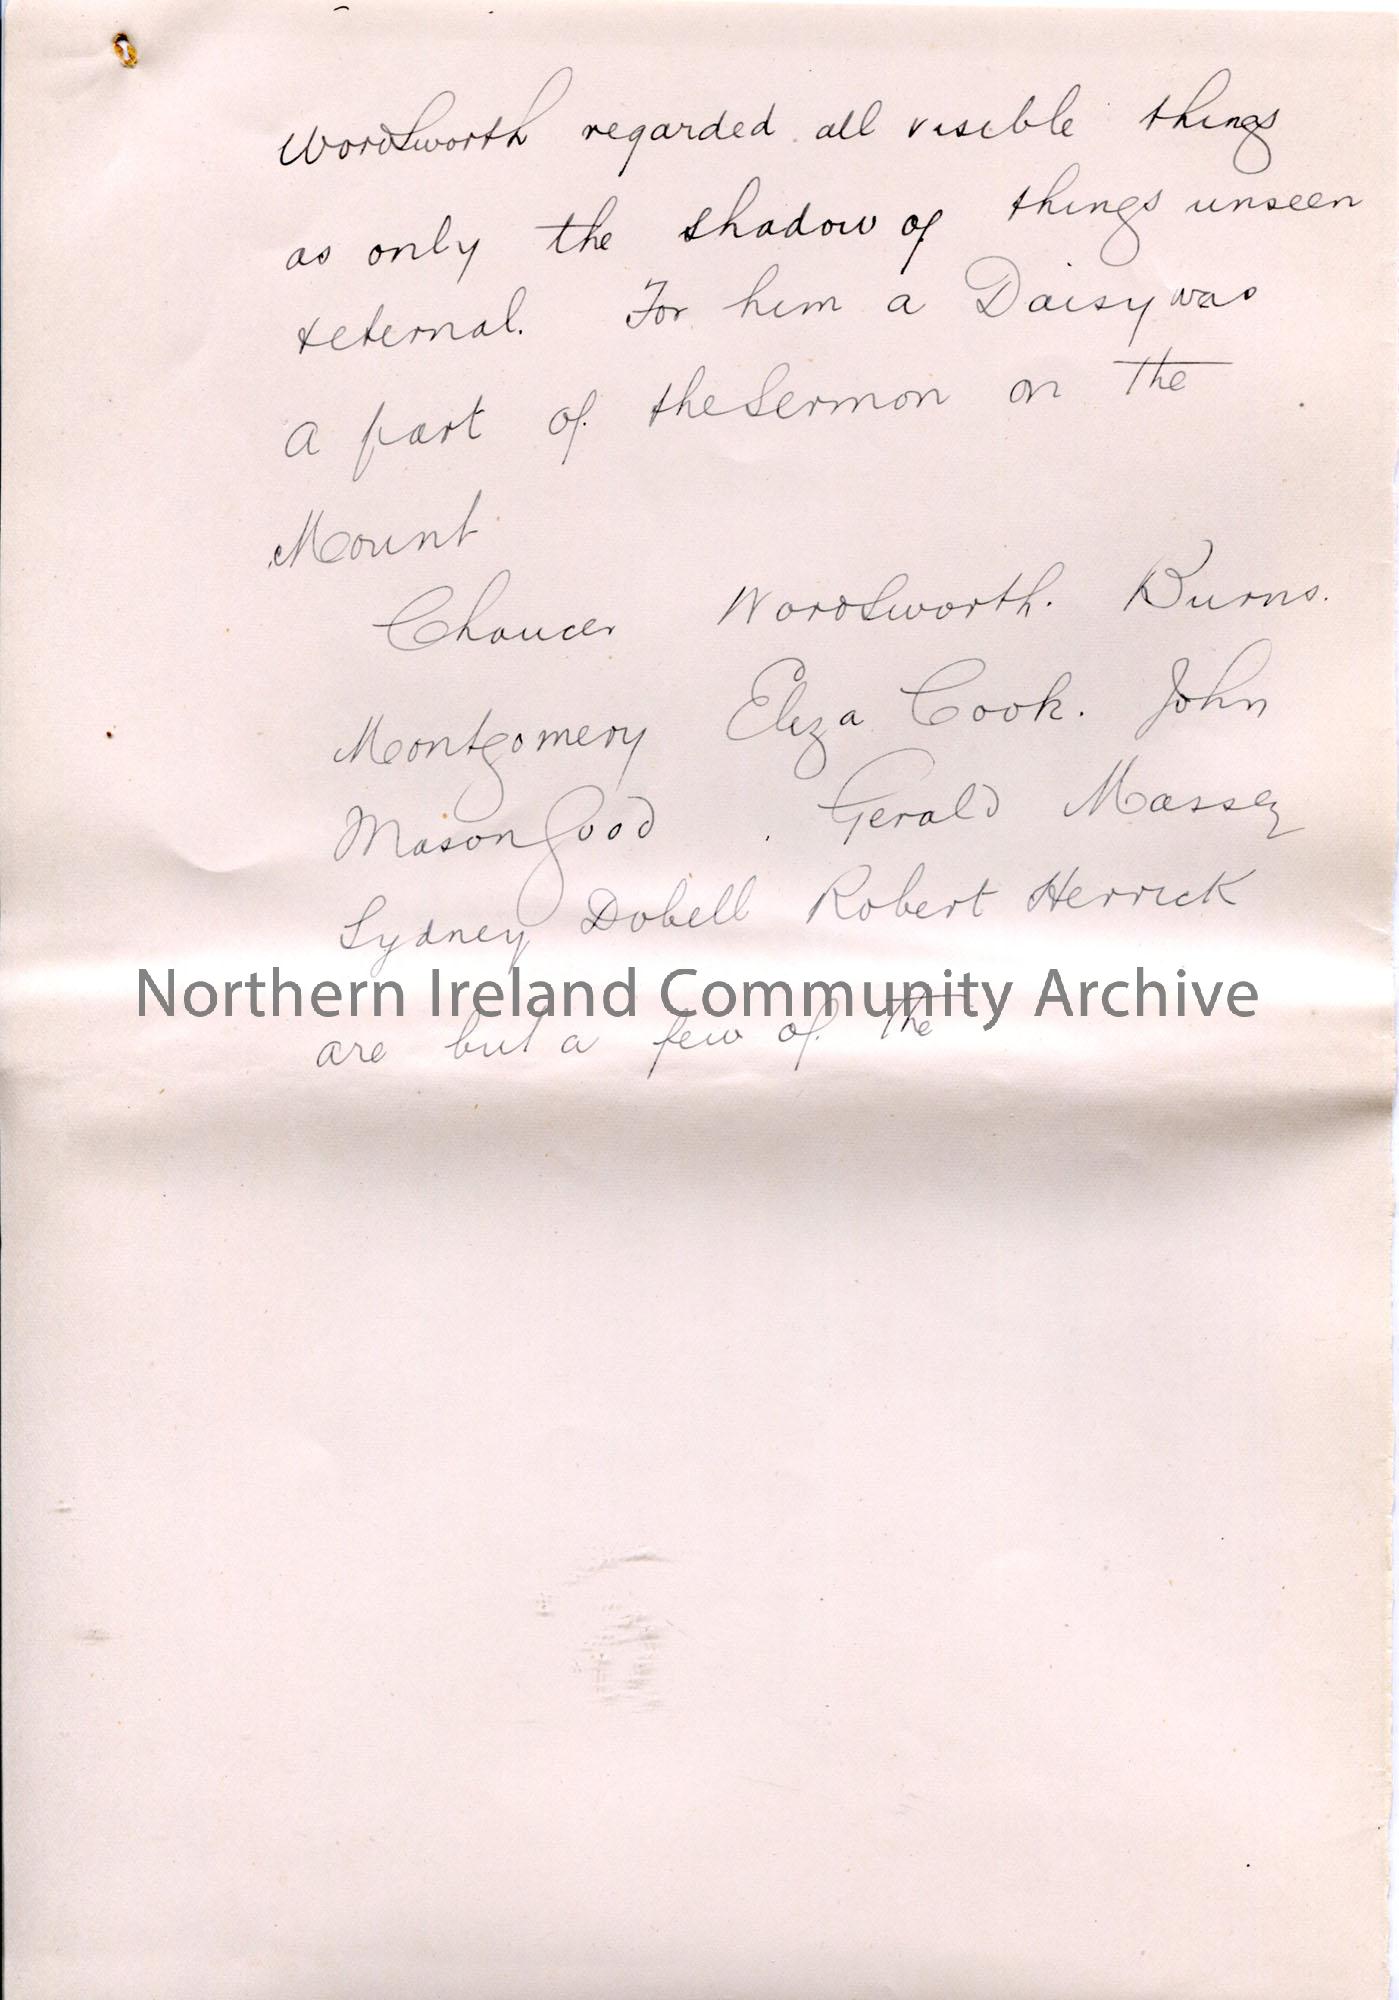 Wordsworth regarded all visible things
as only the shadow of things unseen
& eternal. For him a Daisy was
a part of the Sermon on the
Mount
Chaucer Wordsworth. Burns.
Montgomery Eliza Cook. John
Mason Good. Gerald Massey
Sydney Dobell Robert Herrick
Northern Ireland Community Archive
are but a few of the